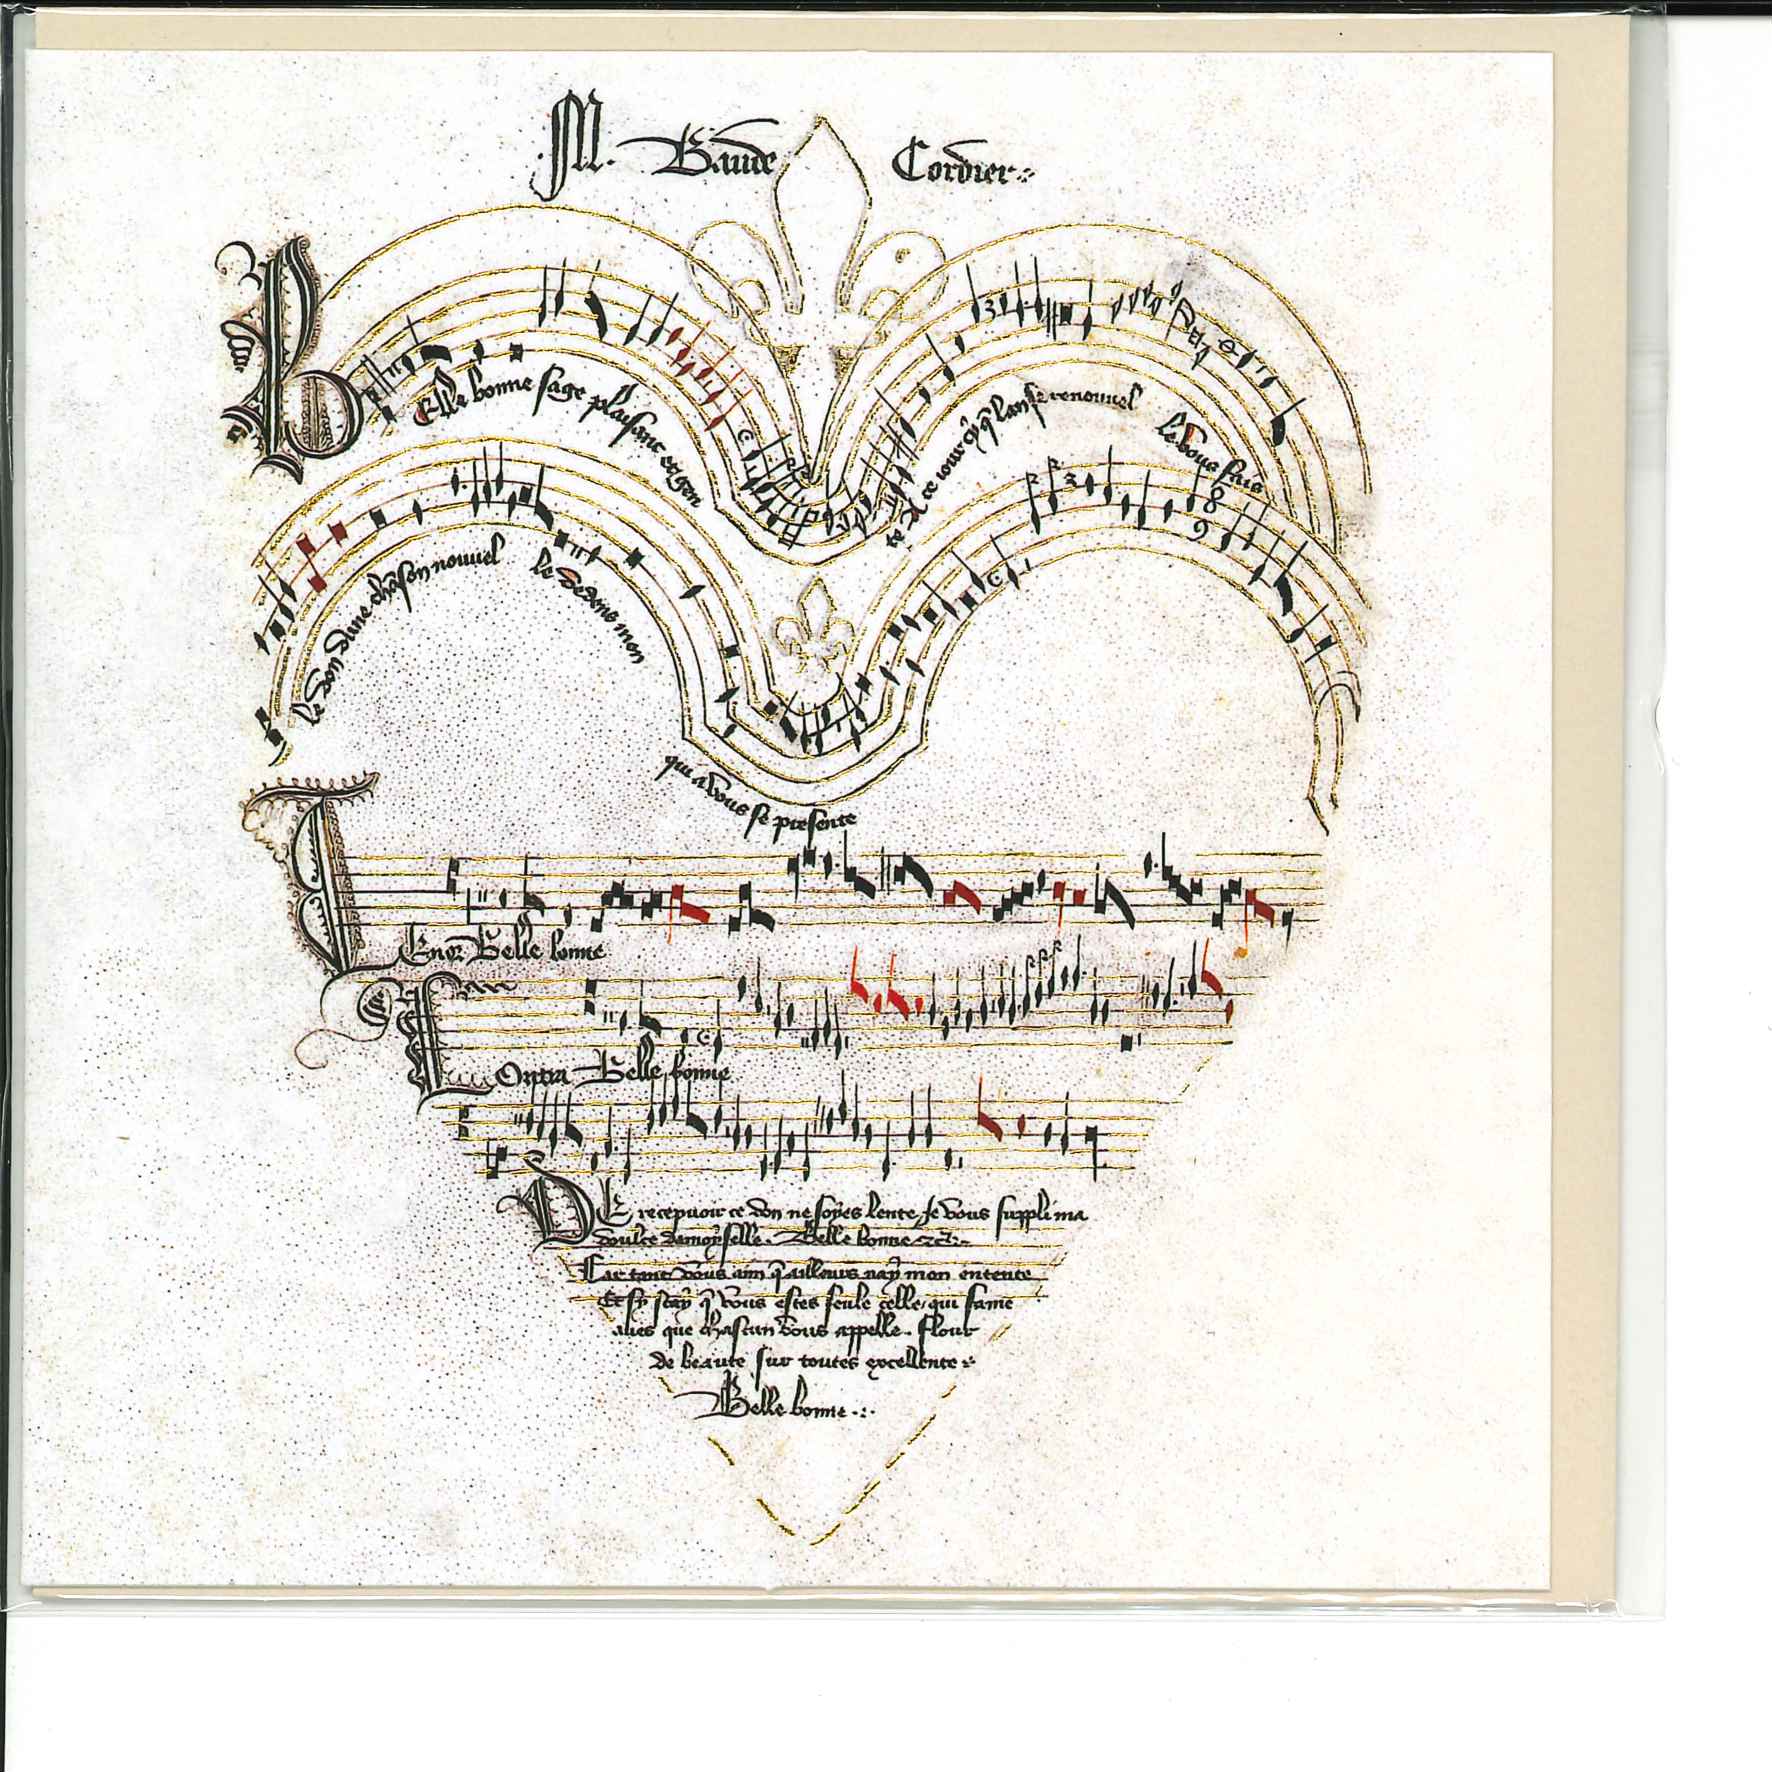 M. Baude Cordier
Belle bonne sage plaisant et gen
te A ce iour cy q̄ lan se renouuel
le vous fais
le don dune chāson nouuel
le dedens mon
qui a vous se presente
Tenor Belle bonne
Contra Belle bonne
DE recepuoir ce don ne soyes lente Je vous suppli ma
doulce damoyselle. Belle bonne etc.
Car tant vous aim q̄ ailleurs nay mon entente
Et sy scay q̄ vous estes seule celle qui fame
aues que chascun vous appelle. Flour
de beaute sur toutes excellente
Belle bonne